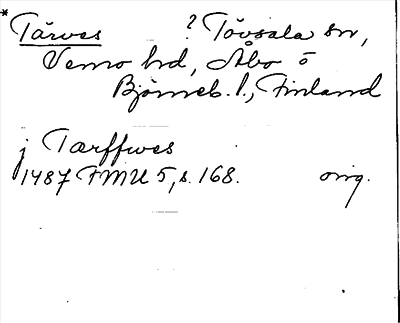 * Tärves ? Tövsala sn,
Vemo hd, Åbo o
Björneb. l., Finland
j Tærffwes
1487 FMU 5, s. 168. orig.